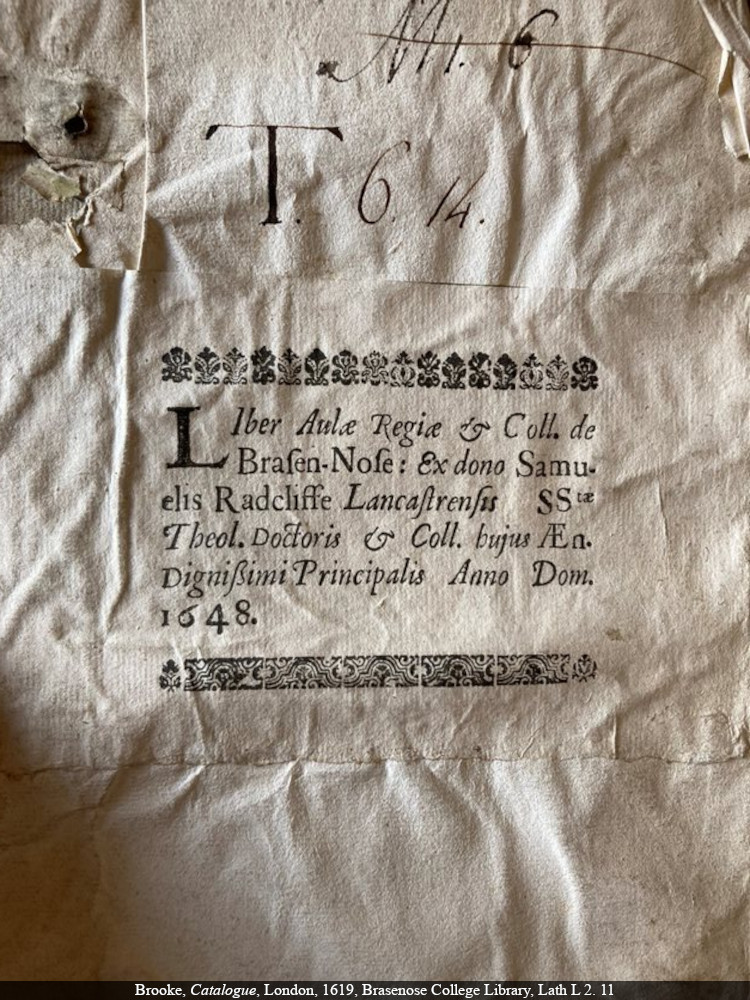 M. 6
T. 6. 14.
LIber Aulæ Regiæ & Coll. de
Braſen-Noſe: Ex dono Samu-
elis Radcliffe Lancaſtrenſis SStæ
Theol. Doctoris & Coll. hujus Æn.
Digniſſimi Principalis Anno Dom.
1648.
Brooke, Catalogue, London, 1619, Brasenose College Library, Lath L 2. 11